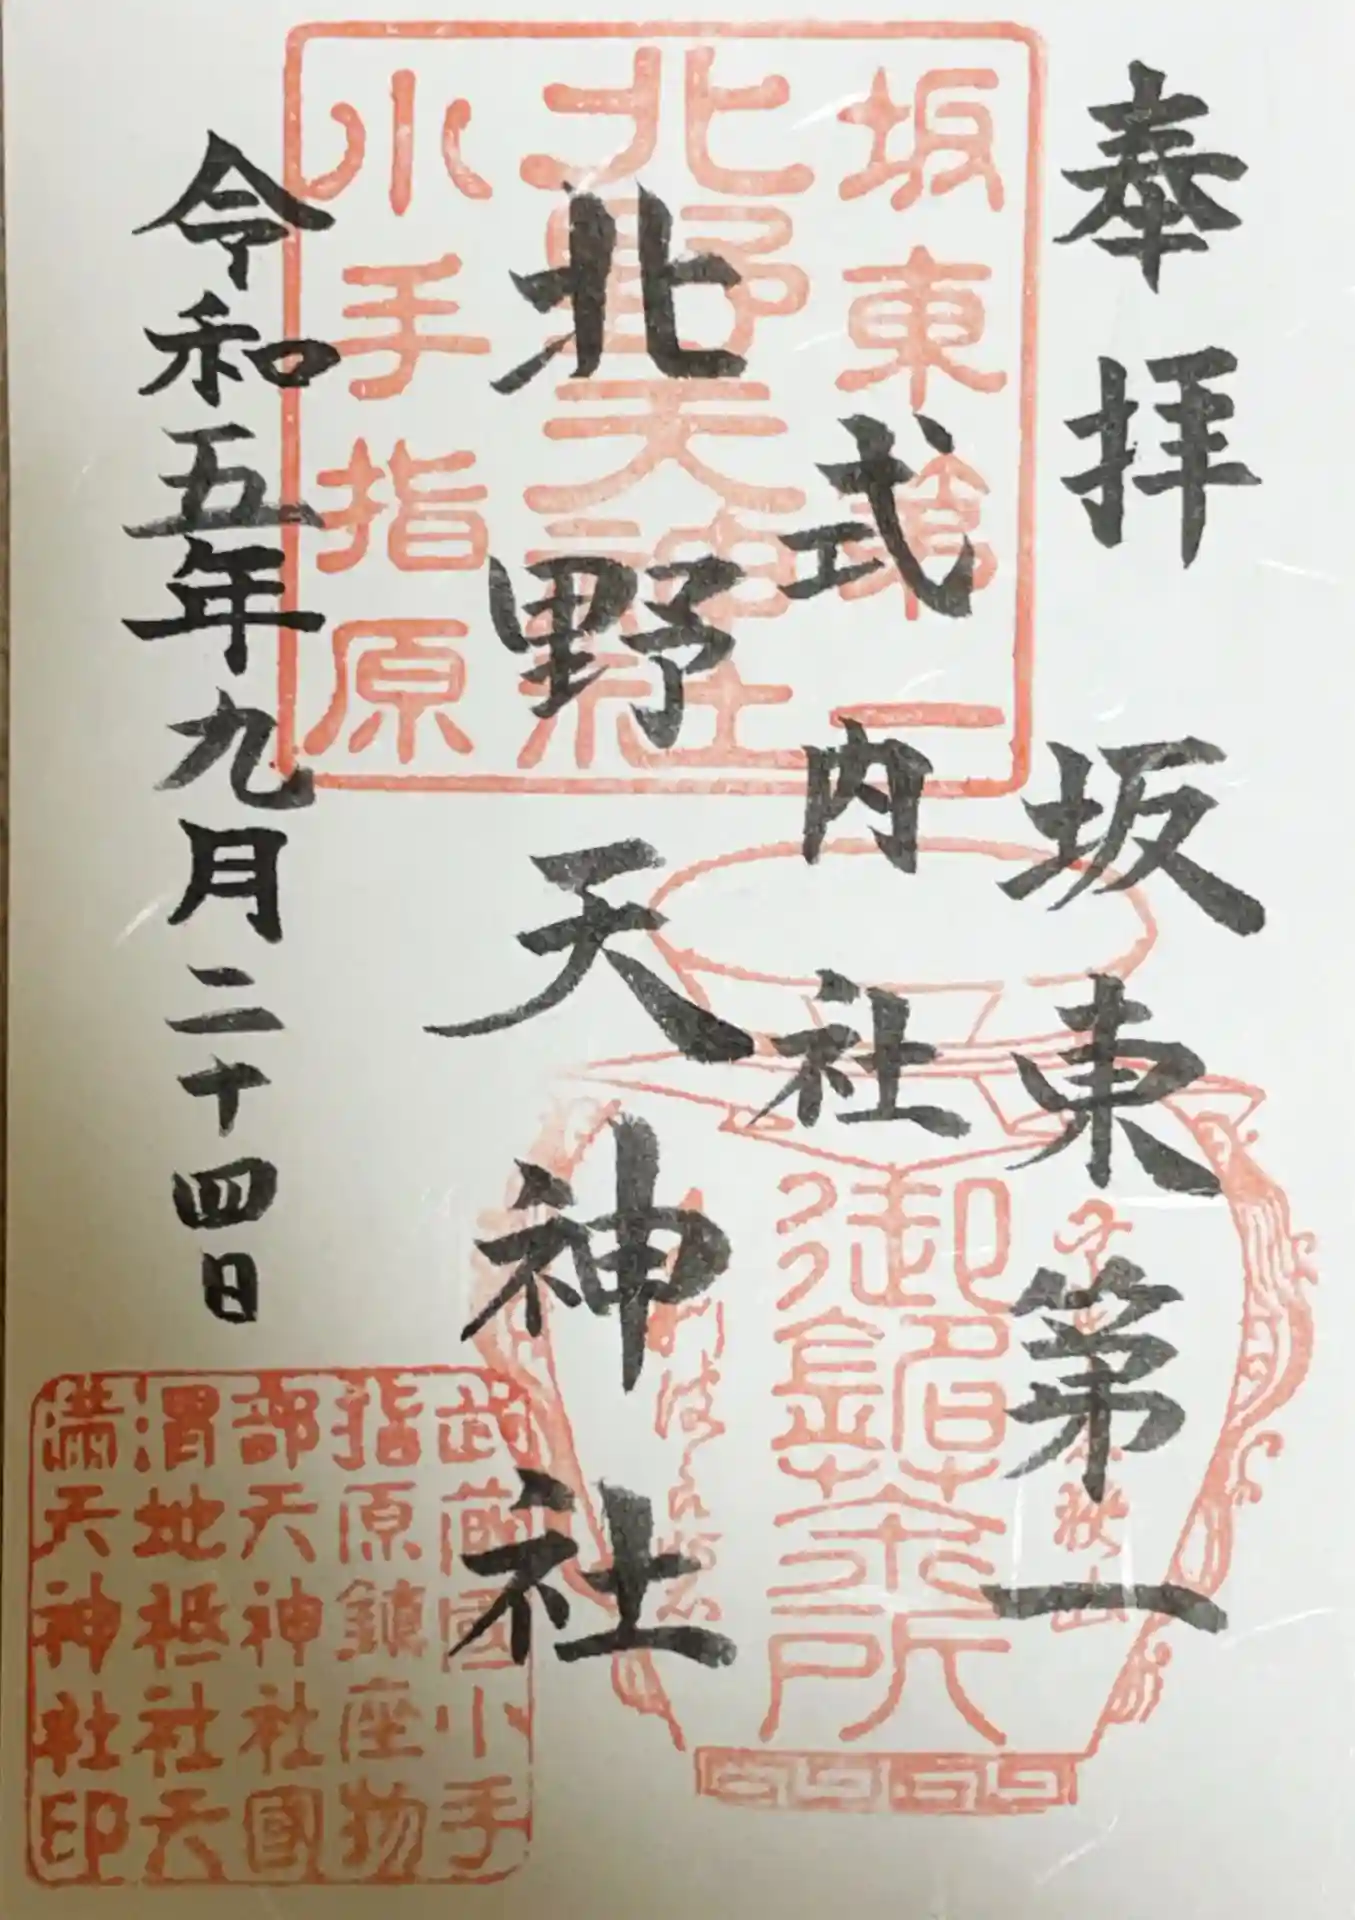 奉拝
坂東第一
式内社
北野天神社
令和五年九月二十四日
坂東第一
北野天神社
小手指原
御茶所
武蔵國小手
指原鎮座物
部天神社國
渭地祇社天
満天神社印